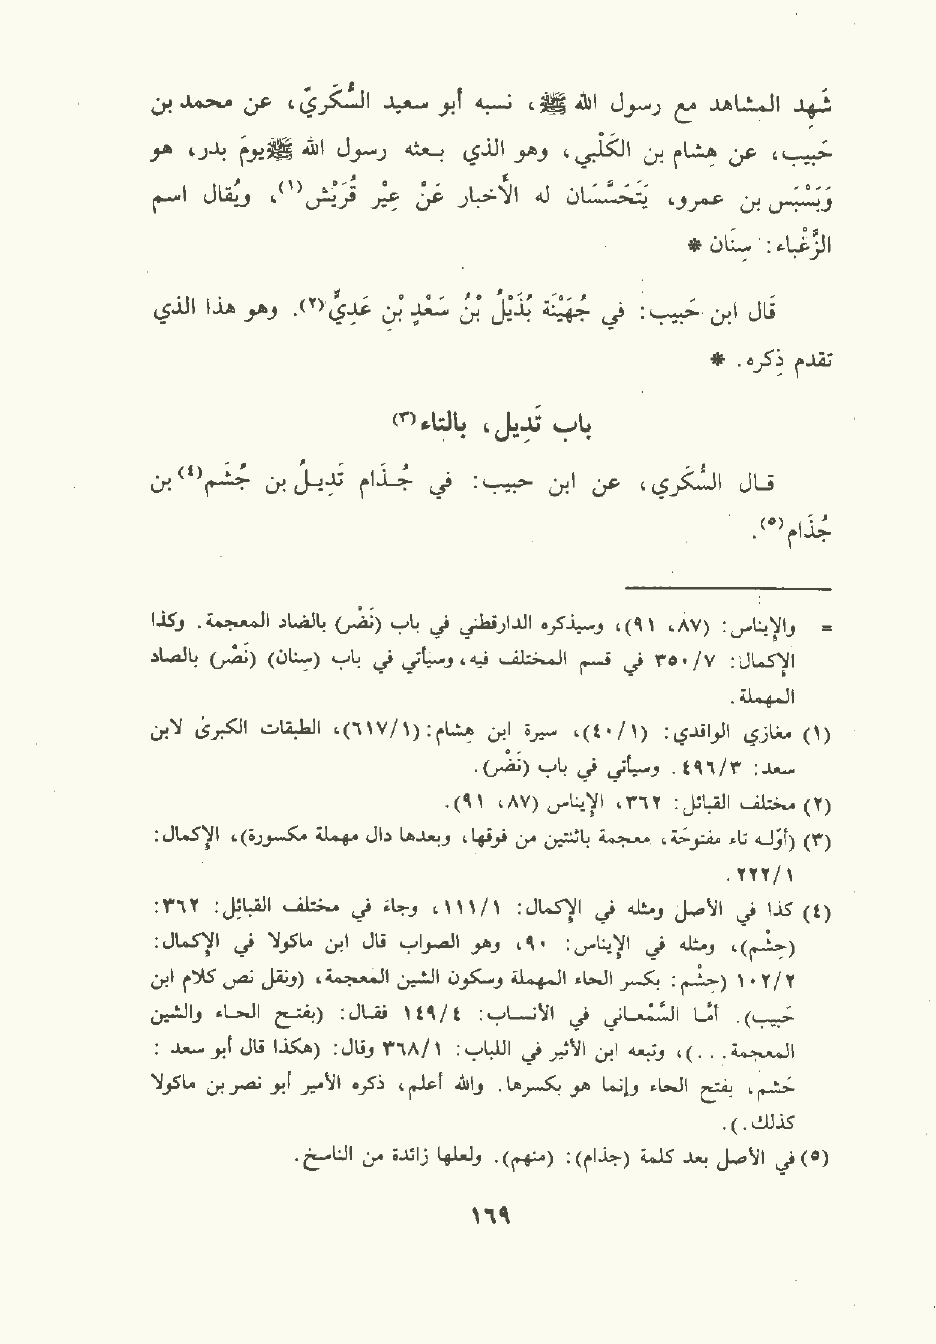 شَهِدَ المشاهد مع رسول الله ﷺ، نسبه أبو سعيد السُّكَّريّ، عن محمد بن
حَبيب، عن هِشام بن الكَلْبي، وهو الذي بَعثه رسول الله ﷺ يومَ بدر، هو
وَبَسْبَس بن عمرو، يَتَحَسَّسَان له الأَخبار عَنْ عِيْر قُرَيْش(١)، ويُقال اسم
الزَّغْباء: سِنَان *
قَال ابن حَبيب: في جُهَيْنَة بُذَيْلُ بْنُ سَعْدِ بْنِ عَدِيٍّ(٢). وهو هذا الذي
تقدم ذِكره. *
باب تَدِيل، بالتاء(٣)
قال السُّكَّري، عن ابن حبيب: في جُذَام تَدِيلُ بن جُشَم(٤) بن
جُذَام(٥).
= والإيناس: (٨٧، ٩١)، وسيذكره الدارقطني في باب (نَضْر) بالضاد المعجمة. وكذا
الإكمال: ٣٥٠/٧ في قسم المختلف فيه، وسيأتي في باب (سنان) (نَصْر) بالصاد
المهملة.
(١) مغازي الواقدي: (٤٠/١)، سيرة ابن هشام: (٦١٧/١)، الطبقات الكبرىٰ لابن
سعد: ٤٩٦/٣. وسيأتي في باب (نَضْر).
(٢) مختلف القبائل: ٣٦٢، الإيناس (٨٧، ٩١).
(٣) (أوّله تاء مفتوحَة، معجمة باثنتين من فوقها، وبعدها دال مهملة مكسورة)، الإكمال:
٢٢٢/١.
(٤) كذا في الأصل ومثله في الإكمال: ١١١/١، وجاءَ في مختلف القبائل: ٣٦٢:
(حِشْم)، ومثله في الإيناس: ٩٠، وهو الصواب قال ابن ماكولا في الإكمال:
١٠٢/٢ (حِشْم: بكسر الحاء المهملة وسكون الشين المعجمة، (ونقل نص كلام ابن
حَبيب). أمَّا السَّمْعاني في الأنساب: ١٤٩/٤ فقال: (بفتح الحاء والشين
المعجمة...)، وتبعه ابن الأثير في اللباب: ٣٦٨/١ وقال: (هكذا قال أبو سعد:
حَشم، بفتح الحاء وإنما هو بكسرها. والله أعلم، ذكره الأمير أبو نصر بن ماكولا
كذلك.).
(٥) في الأصل بعد كلمة (جذام): (منهم). ولعلها زائدة من الناسخ.
١٦٩